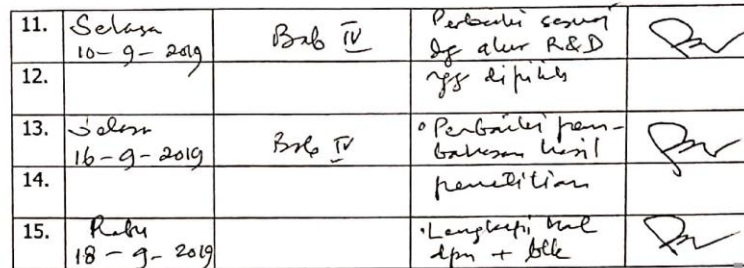 11. Selasa 10-9-2019 Bab IV Perbaiki sesuai
dg alur R&D
12. yg dipilih
13. Selasa 16-9-2019 Bab IV • Perbaiki pem-
bahasan hasil
14. penelitian
15. Rabu 18-9-2019 • Lengkapi hal
dpn + blk